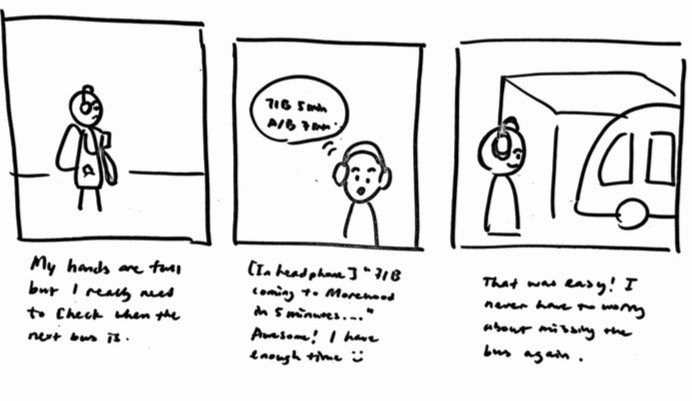 71B 5min
A/B 7min
My hands are full
but I really need
to check when the
next bus is.
[In headphone] "71B
coming to Morewood
in 5 minutes..."
Awesome! I have
enough time :)
That was easy! I
never have to worry
about missing the
bus again.